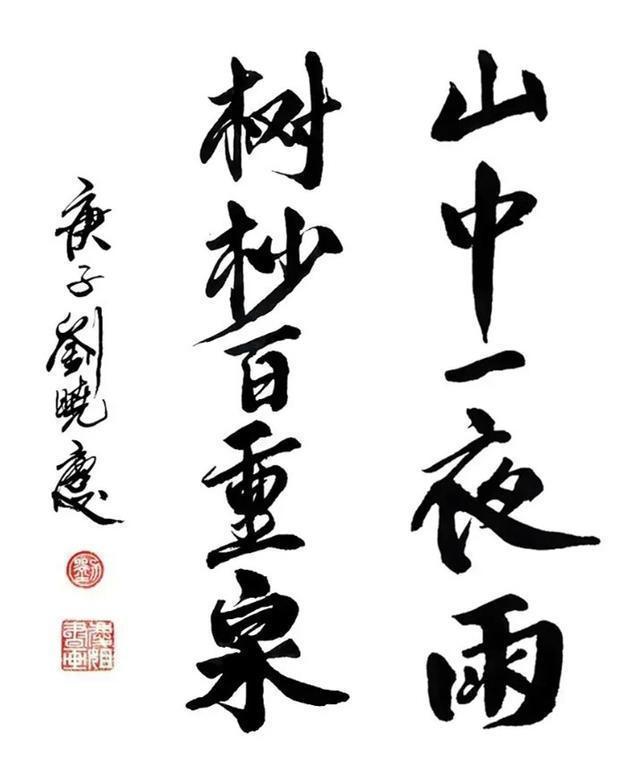 山中一夜雨
树杪百重泉
庚子劉曉慶
劉